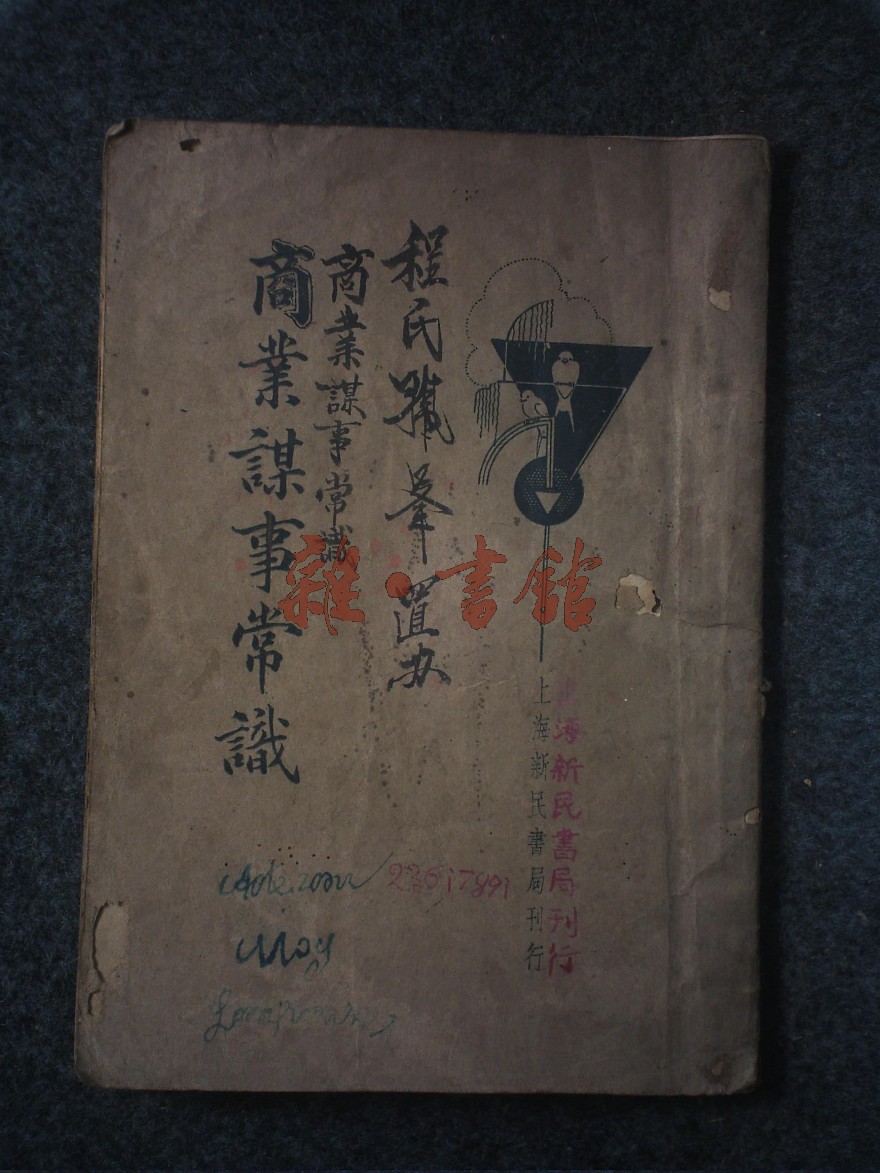 上海新民書局刊行
上海新民書局刊行
程氏峯置办
商業謀事常識
商業謀事常識
雜·書館
Moy